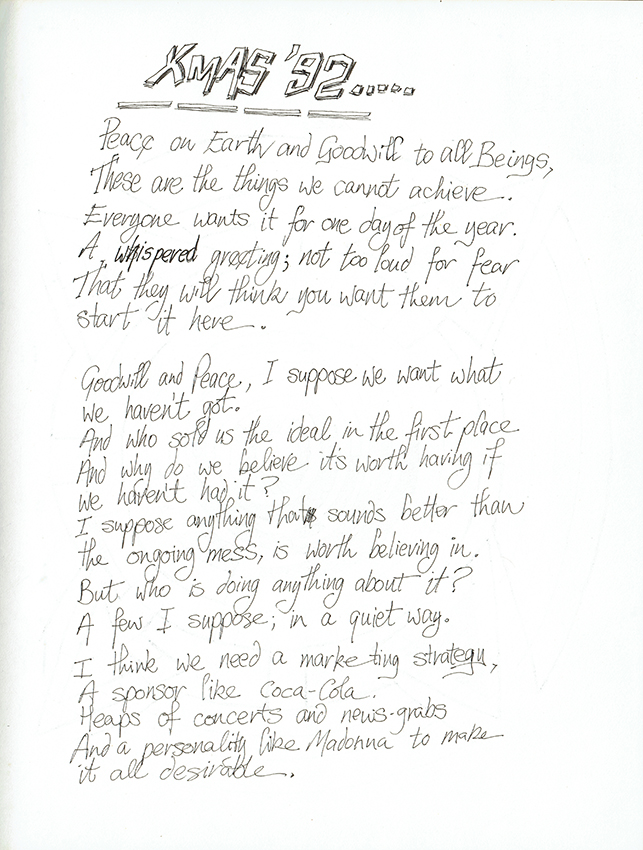 XMAS '92.....
Peace on Earth and Goodwill to all Beings,
These are the things we cannot achieve.
Everyone wants it for one day of the year.
A whispered greeting; not too loud for fear
That they will think you want them to
start it here.
Goodwill and Peace, I suppose we want what
we haven't got.
And who sold us the ideal in the first place
And why do we believe it's worth having if
we haven't had it?
I suppose anything that sounds better than
the ongoing mess, is worth believing in.
But who is doing anything about it?
A few I suppose; in a quiet way.
I think we need a marketing strategy,
A sponsor like Coca-Cola.
Heaps of concerts and news-grabs
And a personality like Madonna to make
it all desirable.